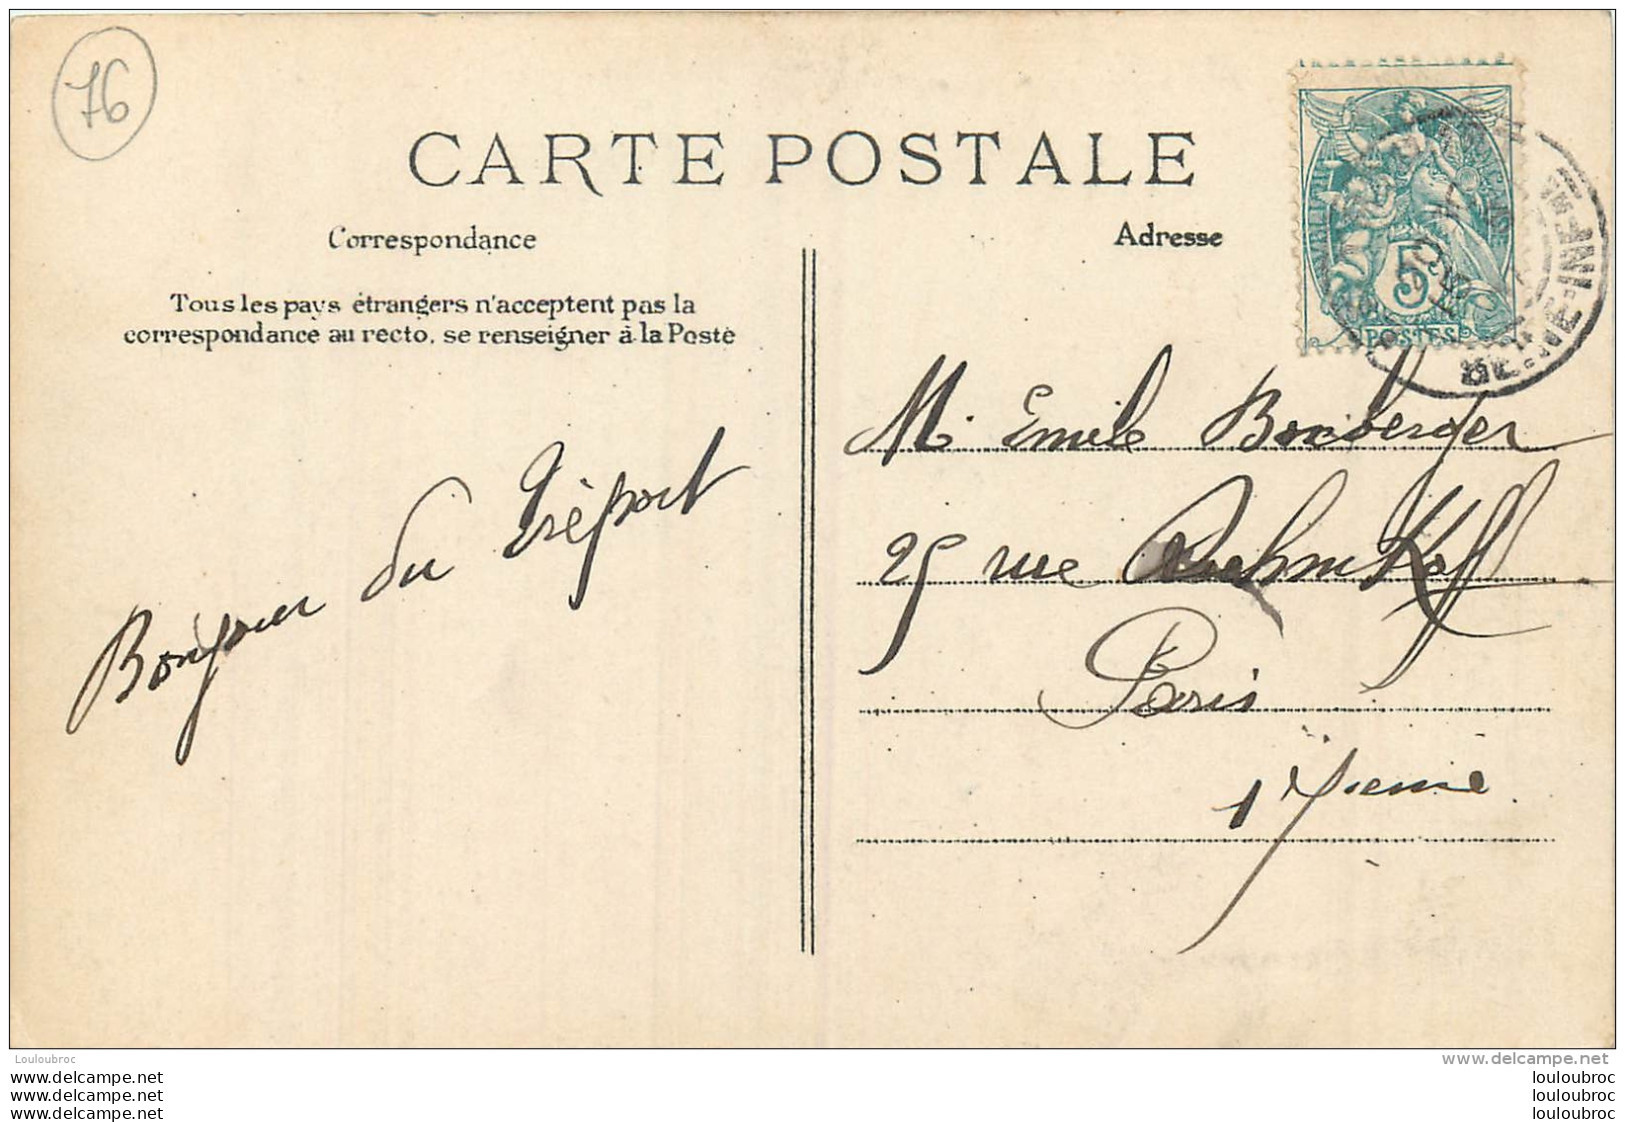 76
CARTE POSTALE
Correspondance
Adresse
Tous les pays étrangers n'acceptent pas la
correspondance au recto, se renseigner à la Poste
5
POSTES
SEINE-INF
Bonjour du Tréport
M. Emile Boxberger
25 rue
Paris
17ieme
Louloubroc
www.delcampe.net
www.delcampe.net
www.delcampe.net
www.delcampe.net
louloubroc
louloubroc
louloubroc